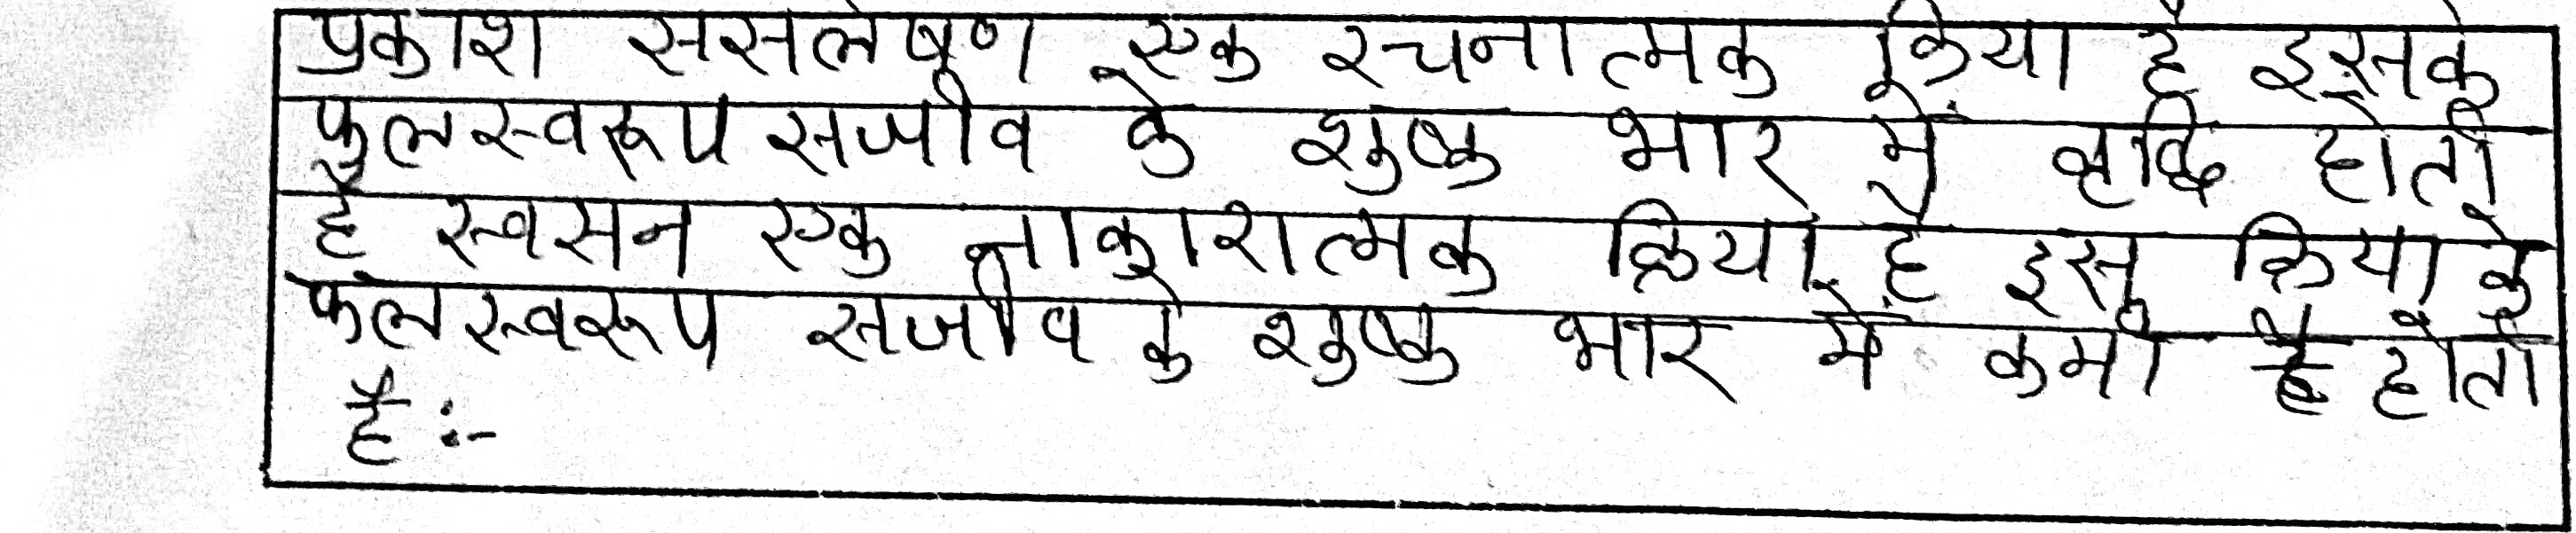 प्रकाश ससलेषण एक रचनात्मक क्रिया है इसके
फलस्वरूप सजीव के शुष्क भार में वृद्धि होती
है स्वसन एक नाकारात्मक क्रिया है इस क्रिया के
फलस्वरूप सजीव के शुष्क भार में कमी है होती
है :-